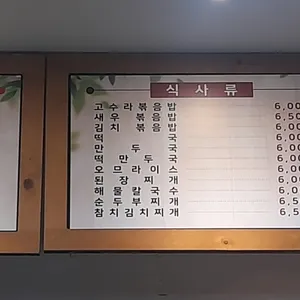 식사류
고수라볶음밥 6,00
새우 볶음밥 6,50
김치 볶음밥 6,00
떡국 6,00
만두국 6,00
떡만두국 6,00
오므라이스 6,00
된장찌개 6,00
해물칼국수 6,00
순두부찌개 6,50
참치김치찌개 6,50